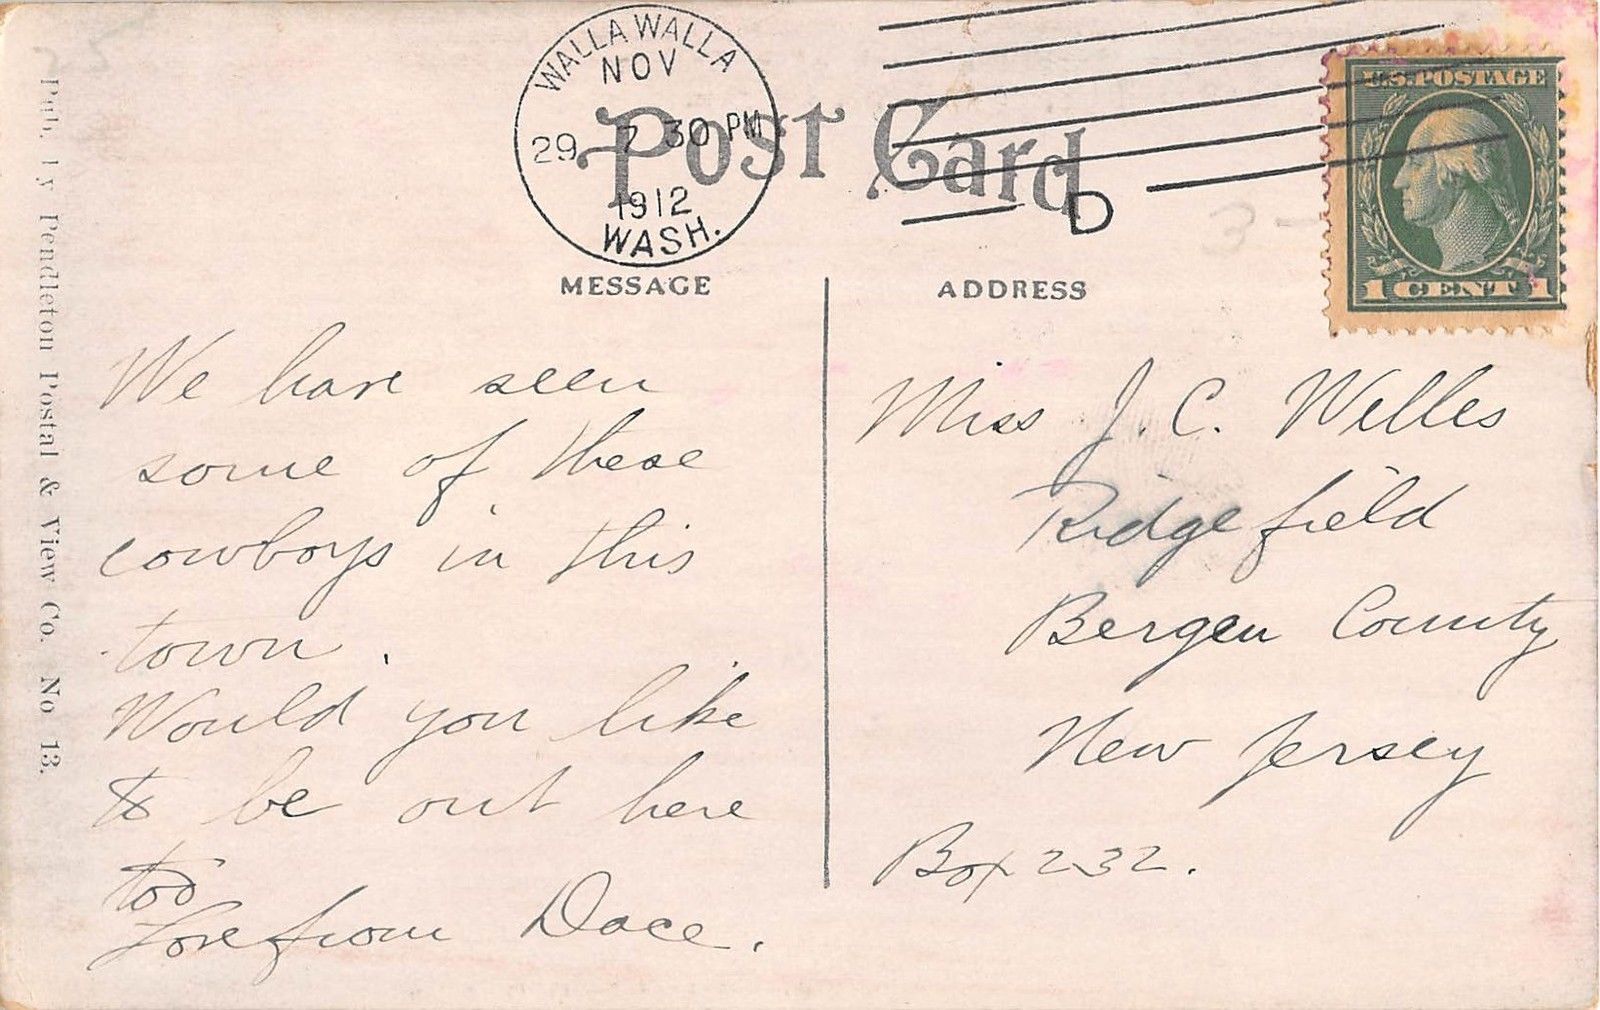 WALLA WALLA
NOV
29 7 30 PM
1912
WASH.
D
Post Card
U.S. POSTAGE
1 CENT 1
MESSAGE
ADDRESS
We have seen
some of these
cowboys in this
town.
Would you like
to be out here
too
Love from Dace.
Miss J. C. Welles
Ridgefield
Bergen County
New Jersey
Box 232.
Pub. by Pendleton Postal & View Co. No 13.